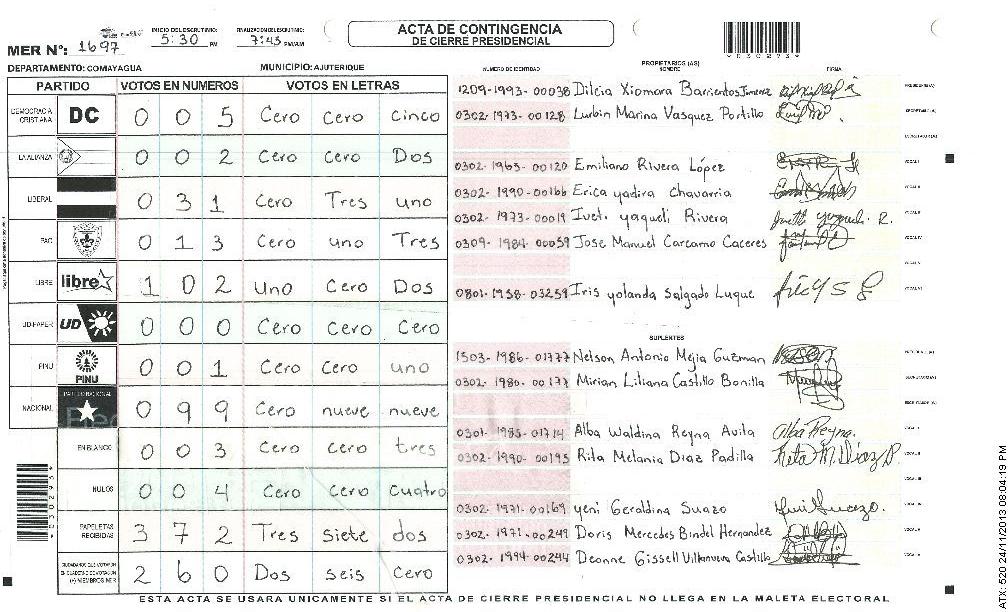 ACTA DE CONTINGENCIA
DE CIERRE PRESIDENCIAL
INICIO DEL ESCRUTINIO: 5:30 PM
FINALIZACION DEL ESCRUTINIO: 7:43 PM/AM
MER N°: 1697
*030293*
DEPARTAMENTO: COMAYAGUA
MUNICIPIO: AJUTERIQUE
NUMERO DE IDENTIDAD
PROPIETARIOS (AS)
NOMBRE
FIRMA
PARTIDO VOTOS EN NUMEROS VOTOS EN LETRAS
DEMOCRACIA CRISTIANA DC 0 0 5 Cero Cero Cinco
LA ALIANZA 0 0 2 Cero Cero Dos
LIBERAL 0 3 1 Cero Tres uno
PAC 0 1 3 Cero uno Tres
LIBRE libre 1 0 2 uno Cero Dos
UD-FAPER UD 0 0 0 Cero Cero Cero
PINU PINU 0 0 1 Cero Cero uno
NACIONAL PARTIDO NACIONAL 0 9 9 Cero nueve nueve
EN BLANCO 0 0 3 Cero Cero tres
NULOS 0 0 4 Cero Cero cuatro
PAPELETAS RECIBIDAS 3 7 2 Tres siete dos
CIUDADANOS QUE VOTARON EN CUADERNO DE VOTACION (+) MIEMBROS MER 2 6 0 Dos seis Cero
1209-1993-00038 Dilcia Xiomara Barrientos Jimenez PRESIDENTE (A)
0302-1973-00128 Lurbin Marina Vasquez Portillo SECRETARIO (A)
ESCRUTADOR (A)
0302-1965-00120 Emiliano Rivera López VOCAL I
0302-1990-00166 Erica yadira Chavarria VOCAL II
0302-1973-00019 Ivet. yaqueli Rivera
0309-1984-00059 Jose Manuel Carcamo Caceres VOCAL IV
VOCAL V
0801-1958-03259 Iris yolanda Salgado Luque VOCAL VI
SUPLENTES
1503-1986-01777 Nelson Antonio Mejia Guzman PRESIDENTE (A)
0302-1980-00177 Mirian Liliana Castillo Bonilla SECRETARIO (A)
ESCRUTADOR (A)
0301-1985-01714 Alba Waldina Reyna Avila Alba Reyna.
0302-1990-00195 Rita Melania Diaz Padilla Rita M. Diaz P.
0302-1971-00169 yeni Geraldina Suazo
0302-1971-00249 Doris Mercedes Bindel Hernandez
0302-1994-00244 Deonne Gissell Villanueva Castillo
*030293*
ESTA ACTA SE USARA UNICAMENTE SI EL ACTA DE CIERRE PRESIDENCIAL NO LLEGA EN LA MALETA ELECTORAL
ATX: 520 24/11/2013 08:04:19 PM